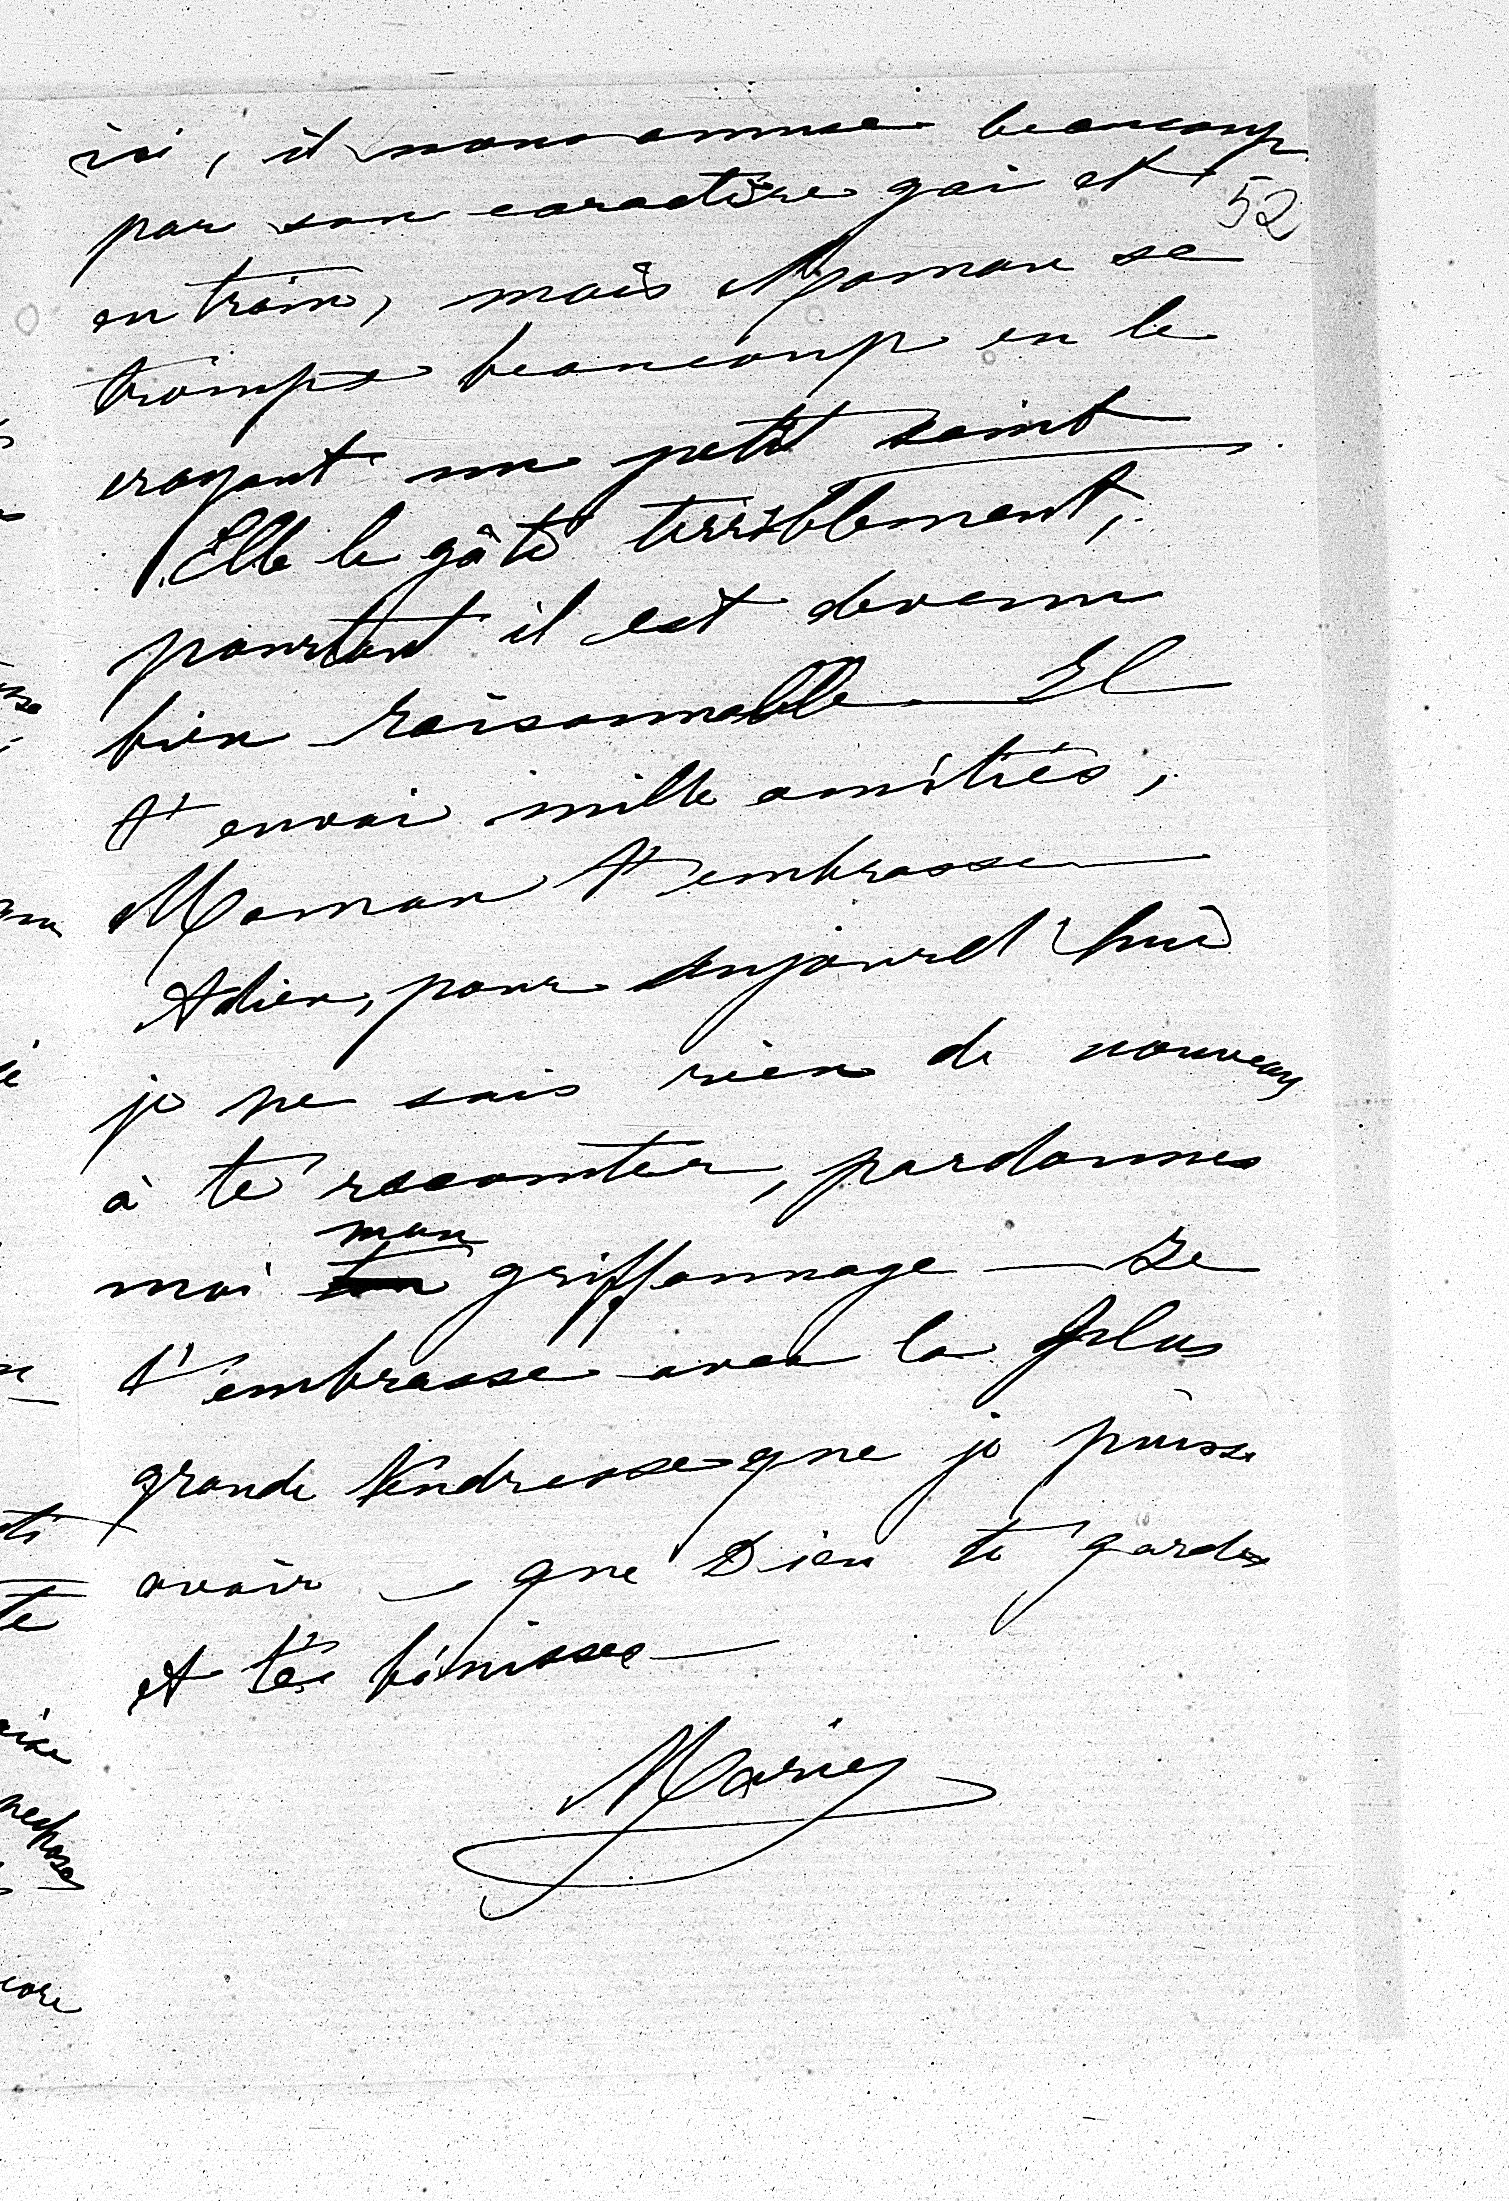 ici, il nous amuse beaucoup
52
par son caractère gai et
en train, mais Maman se
trompe beaucoup en le
croyant un petit saint
Elle le gâte terriblement,
pourtant il est devenu
bien raisonnable — Il
t'envoi mille amitiés,
Maman t'embrasse
Adieu, pour aujourd'hui
je ne sais rien de nouveau
à te raconter, pardonnes
mon
moi ton griffonnage — Je
t'embrasse avec la plus
grande tendresse que je puisse
avoir — que Dieu te garde
et te bénisse —
Marie